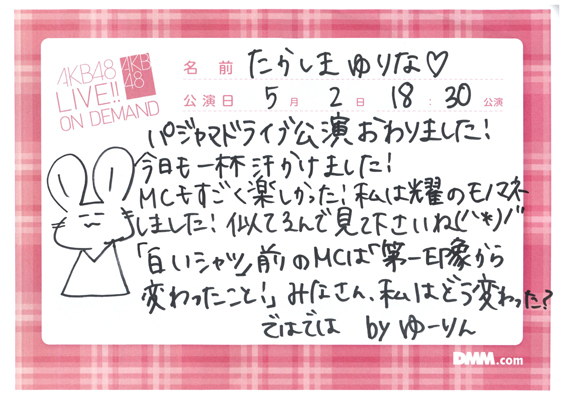 AKB48
LIVE!!
ON DEMAND
AKB
48
名前 たかしまゆりな♡
公演日 5月2日 18:30公演
パジャマドライブ公演おわりました!
今日も一杯汗かけました!
MCもすごく楽しかった!私は耀のモノマネ
しました!似てるんで見て下さいね(^^*)/゛
「白いシャツ」前のMCは「第一印象から
変わったこと!」みなさん、私はどう変わった?
ではでは by ゆーりん
DMM.com